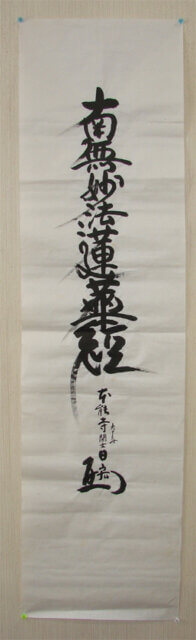 南無妙法蓮華経
本能寺 日